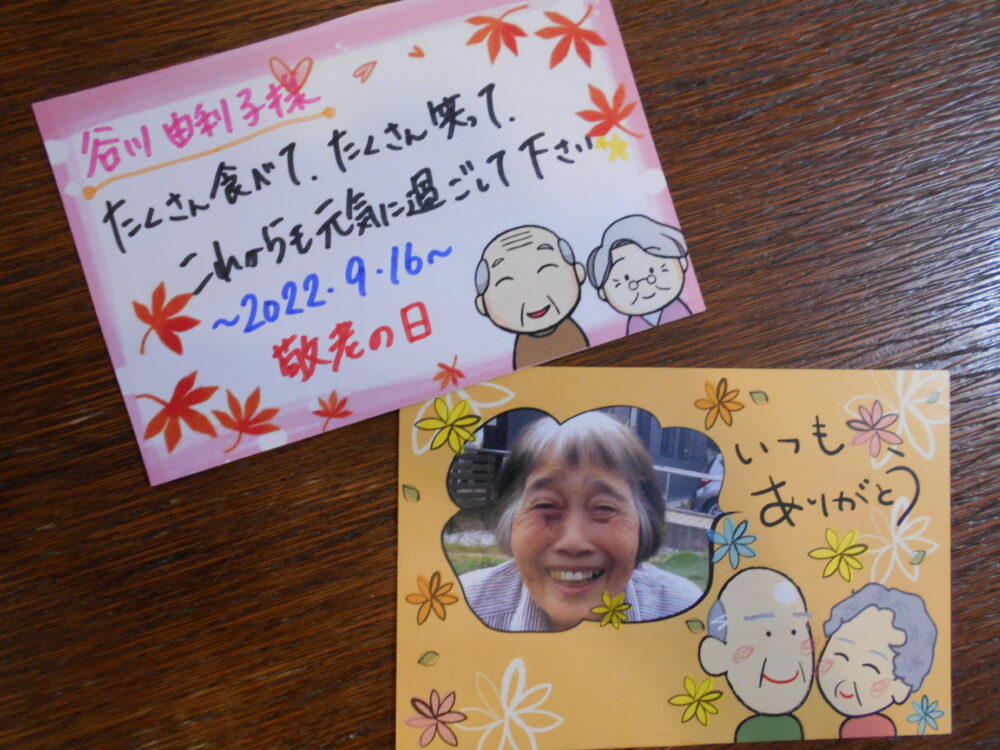 谷川 由利子様
たくさん食べて、たくさん笑って、
これからも元気に過ごして下さい
～2022.9.16～
敬老の日
いつも
ありがとう